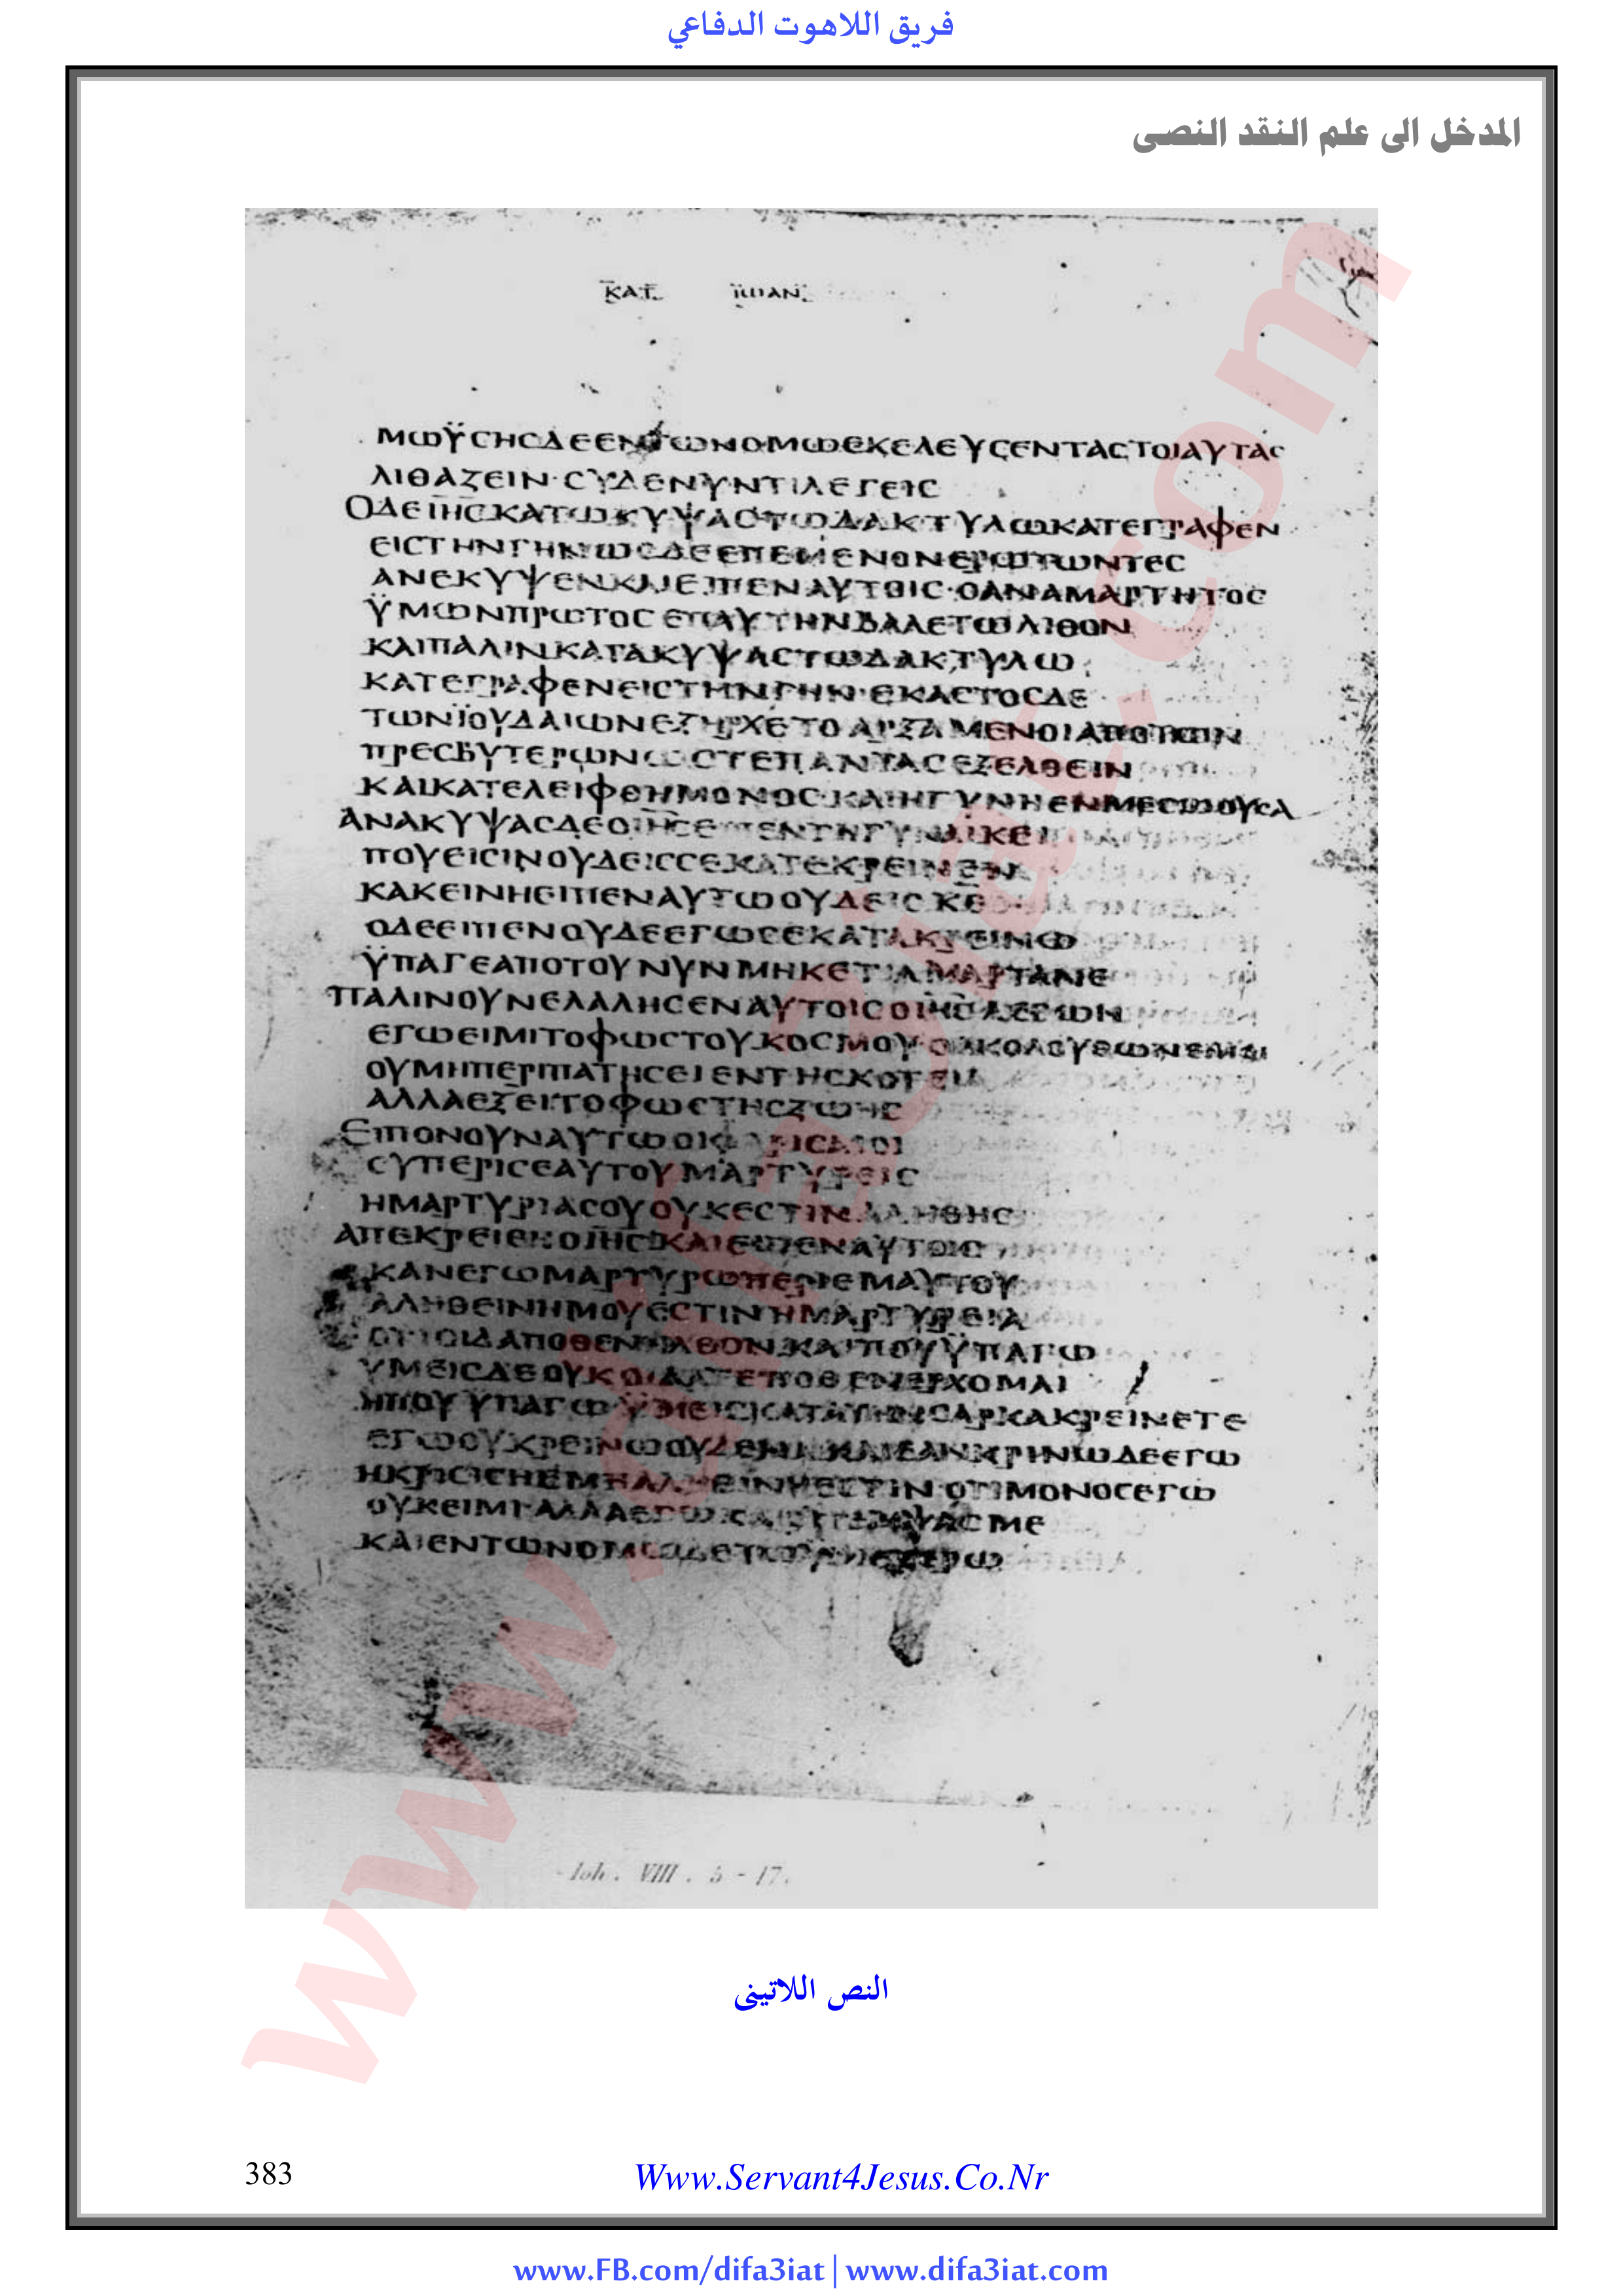 فريق اللاهوت الدفاعي
المدخل الى علم النقد النصى
ΚΑΤ ΪΩΑΝ
ΜΩΫϹΗϹΔΕΕΝΤΩΝΟΜΩΕΚΕΛΕΥϹΕΝΤΑϹΤΟΙΑΥΤΑϹ
ΛΙΘΑΖΕΙΝ·ϹΥΔΕΝΥΝΤΙΛΕΓΕΙϹ
ΟΔΕΙΗϹΚΑΤΩΚΥΨΑϹΤΩΔΑΚΤΥΛΩΚΑΤΕΓΡΑΦΕΝ
ΕΙϹΤΗΝΓΗΝΩϹΔΕΕΠΕΜΕΝΟΝΕΡΩΤΩΝΤΕϹ
ΑΝΕΚΥΨΕΝΚΑΙΕΙΠΕΝΑΥΤΟΙϹ·ΟΑΝΑΜΑΡΤΗΤΟϹ
ΫΜΩΝΠΡΩΤΟϹΕΠΑΥΤΗΝΒΑΛΕΤΩΛΙΘΟΝ
ΚΑΙΠΑΛΙΝΚΑΤΑΚΥΨΑϹΤΩΔΑΚΤΥΛΩ
ΚΑΤΕΓΡΑΦΕΝΕΙϹΤΗΝΓΗΝ·ΕΚΑϹΤΟϹΔΕ
ΤΩΝΪΟΥΔΑΙΩΝΕΞΗΡΧΕΤΟΑΡΞΑΜΕΝΟΙΑΠΟΤΩΝ
ΠΡΕϹΒΥΤΕΡΩΝΩϹΤΕΠΑΝΤΑϹΕΞΕΛΘΕΙΝ
ΚΑΙΚΑΤΕΛΕΙΦΘΗΜΟΝΟϹ·ΚΑΙΗΓΥΝΗΕΝΜΕϹΩΟΥϹΑ
ΑΝΑΚΥΨΑϹΔΕΟΙΗϹΕΙΠΕΝΤΗΓΥΝΑΙΚΕΙ
ΠΟΥΕΙϹΙΝΟΥΔΕΙϹϹΕΚΑΤΕΚΡΕΙΝΕΝ
ΚΑΚΕΙΝΗΕΙΠΕΝΑΥΤΩΟΥΔΕΙϹΚΕ
ΟΔΕΕΙΠΕΝΟΥΔΕΕΓΩϹΕΚΑΤΑΚΡΕΙΝΩ
ΫΠΑΓΕΑΠΟΤΟΥΝΥΝΜΗΚΕΤΙΑΜΑΡΤΑΝΕ
ΠΑΛΙΝΟΥΝΕΛΑΛΗϹΕΝΑΥΤΟΙϹΟΙΗϹΛΕΓΩΝ
ΕΓΩΕΙΜΙΤΟΦΩϹΤΟΥΚΟϹΜΟΥ·ΟΑΚΟΛΟΥΘΩΝΕΜΟΙ
ΟΥΜΗΠΕΡΙΠΑΤΗϹΕΙΕΝΤΗϹΚΟΤΕΙΑ
ΑΛΛΑΕΞΕΙΤΟΦΩϹΤΗϹΖΩΗϹ
ΕΙΠΟΝΟΥΝΑΥΤΩΟΙΦΑΡΙϹΑΙΟΙ
ϹΥΠΕΡΙϹΕΑΥΤΟΥΜΑΡΤΥΡΕΙϹ
ΗΜΑΡΤΥΡΙΑϹΟΥΟΥΚΕϹΤΙΝΑΛΗΘΗϹ
ΑΠΕΚΡΕΙΘΗΟΙΗϹΚΑΙΕΙΠΕΝΑΥΤΟΙϹ
ΚΑΝΕΓΩΜΑΡΤΥΡΩΠΕΡΙΕΜΑΥΤΟΥ
ΑΛΗΘΕΙΝΗΜΟΥΕϹΤΙΝΗΜΑΡΤΥΡΕΙΑ
ΟΤΙΟΙΔΑΠΟΘΕΝΗΛΘΟΝ·ΚΑΙΠΟΥΫΠΑΓΩ
ΥΜΕΙϹΔΕΟΥΚΟΙΔΑΤΕΠΟΘΕΝΕΡΧΟΜΑΙ
ΗΠΟΥΥΠΑΓΩΫΜΕΙϹΚΑΤΑΤΗΝϹΑΡΚΑΚΡΕΙΝΕΤΕ
ΕΓΩΟΥΚΡΕΙΝΩΟΥΔΕΝΑ·ΚΑΙΕΑΝΚΡΙΝΩΔΕΕΓΩ
ΗΚΡΙϹΙϹΗΕΜΗΑΛΗΘΕΙΝΗΕϹΤΙΝ·ΟΤΙΜΟΝΟϹΕΓΩ
ΟΥΚΕΙΜΙ·ΑΛΛΑΕΓΩΚΑΙΟΠΕΜΨΑϹΜΕ
ΚΑΙΕΝΤΩΝΟΜΩΔΕΤΩ
Joh. VIII. 5 - 17.
النص اللاتينى
383
Www.Servant4Jesus.Co.Nr
www.FB.com/difa3iat | www.difa3iat.com
www.difa3iat.com